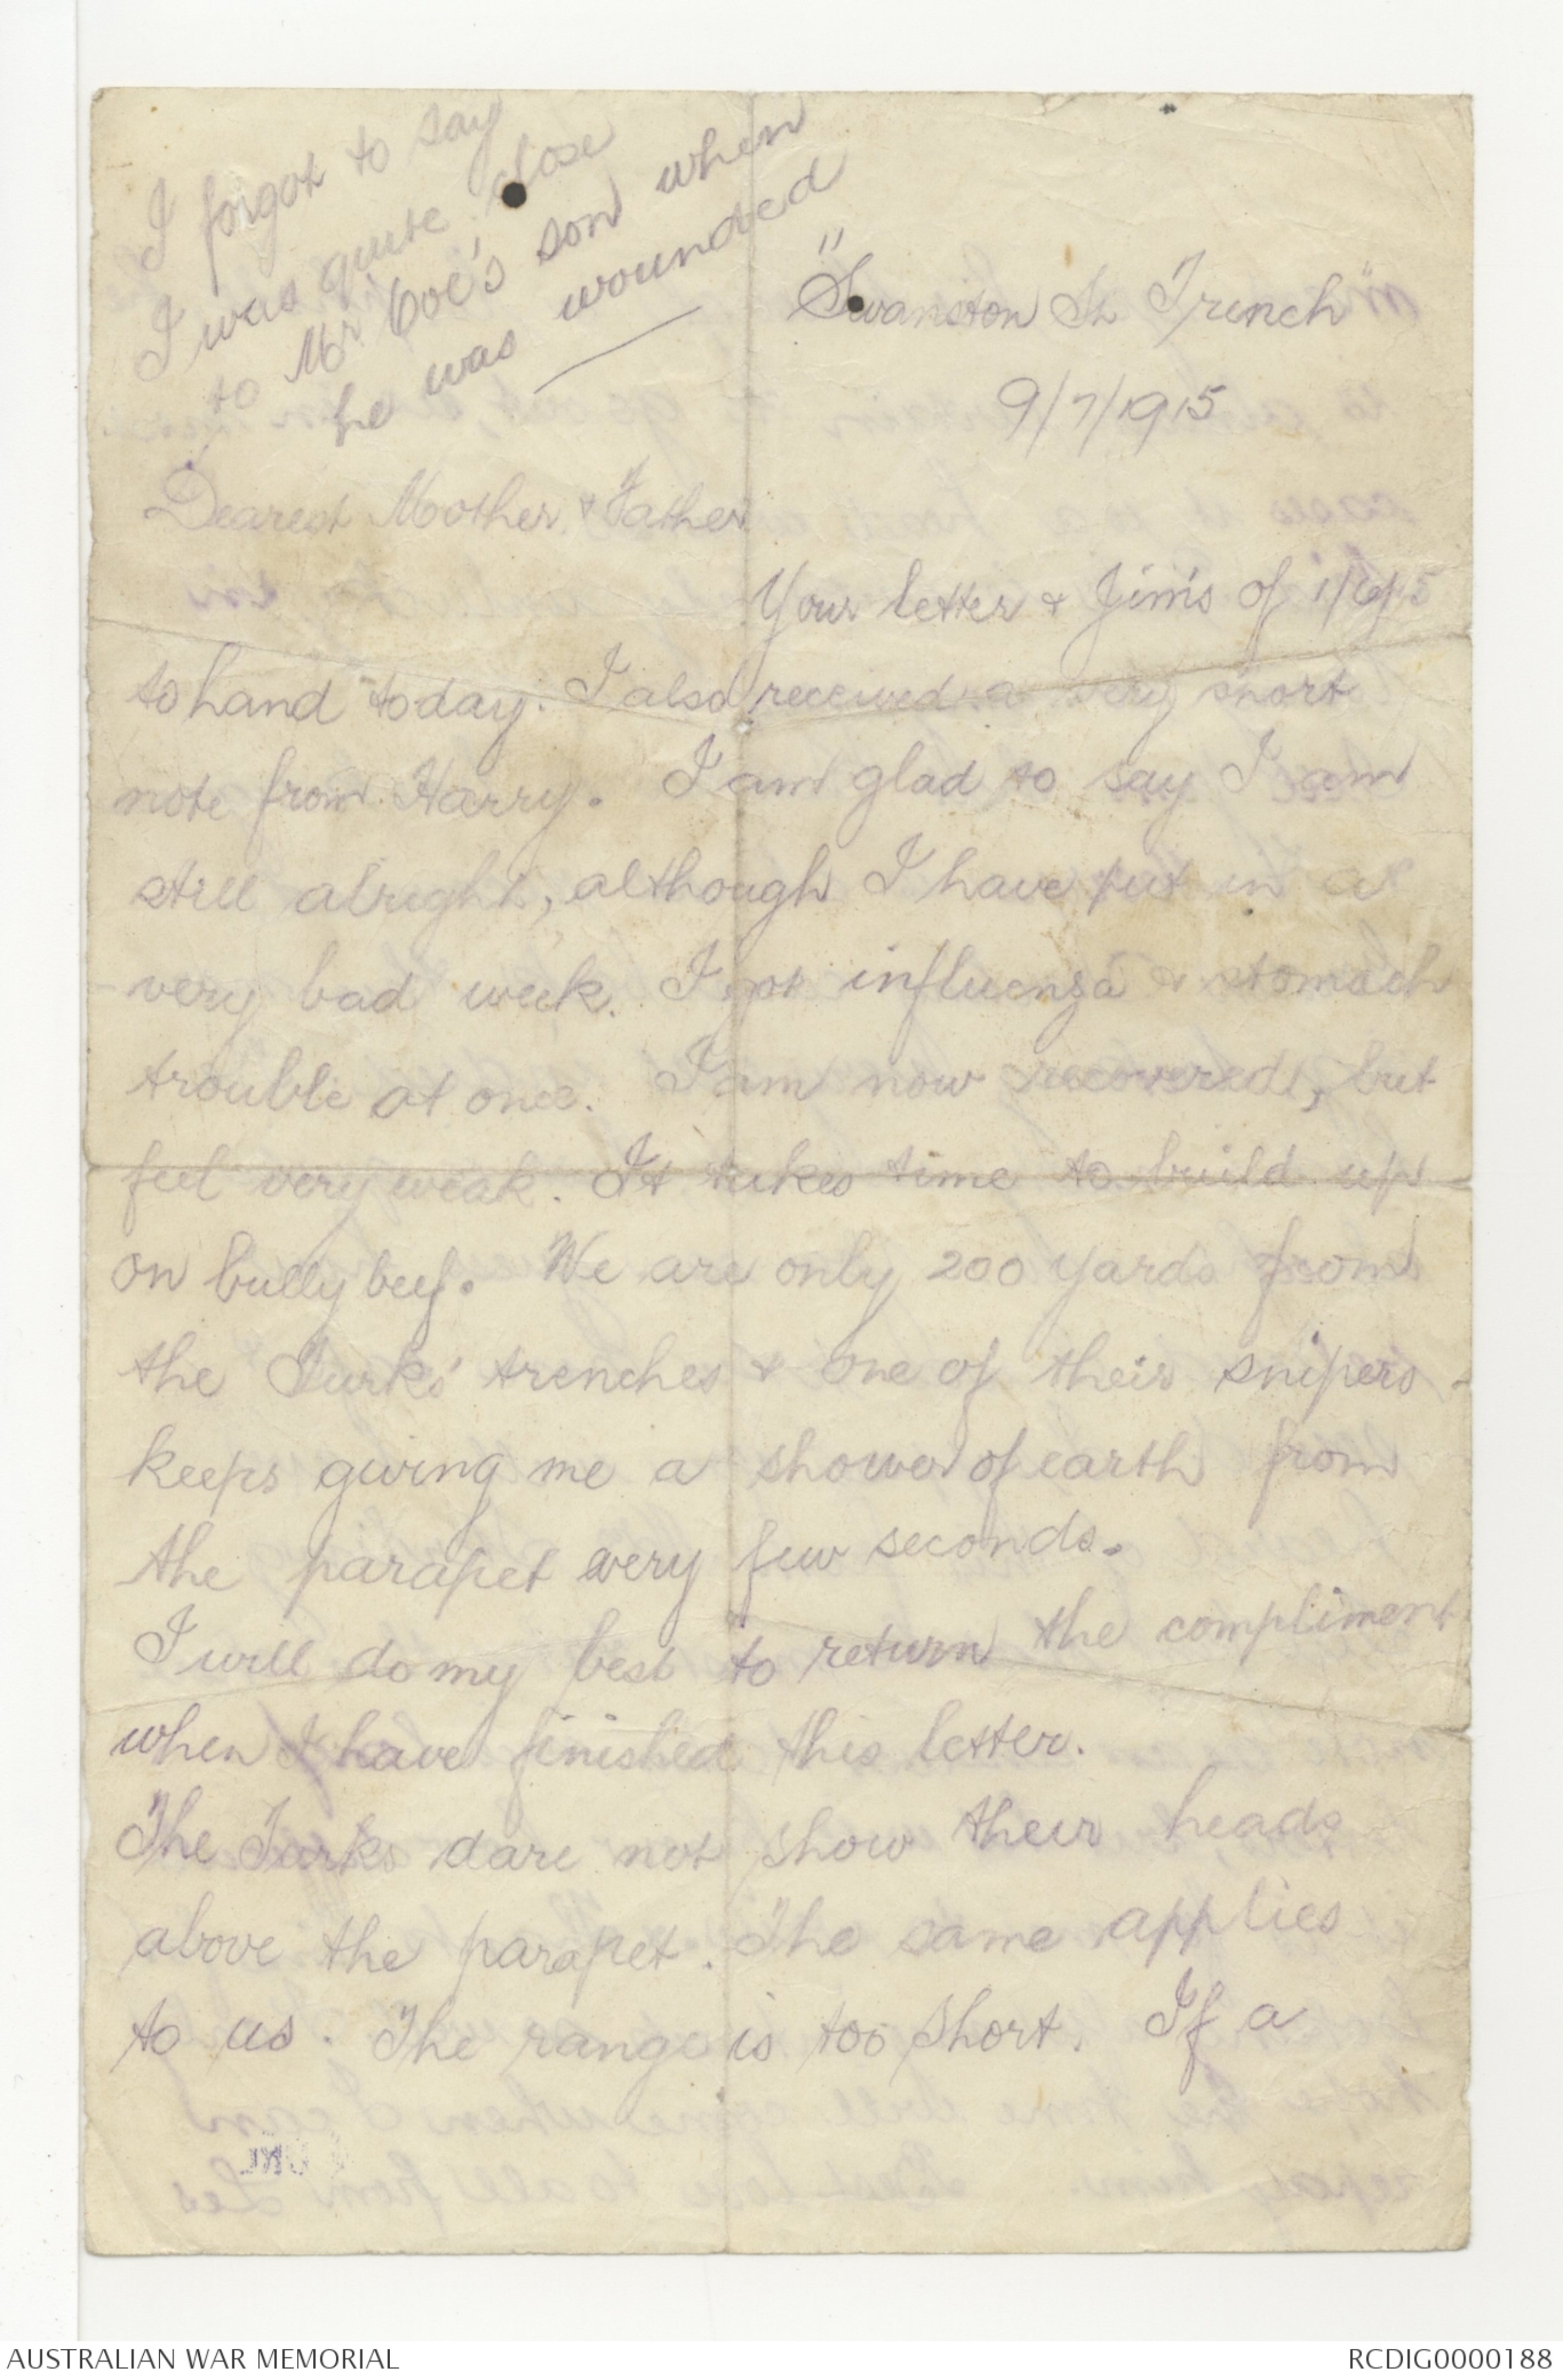 I forgot to say
I was quite close
to Mr Coe's son when
he was wounded
"Swanston St Trench"
9/7/1915
Dearest Mother & Father
Your letter & Jim's of 1/6/15
to hand today. I also received a very short
note from Harry. I am glad to say I am
still alright, although I have put in a
very bad week. I got influenza & stomach
trouble at once. I am now recovered, but
feel very weak. It takes time to build up
on bully beef. We are only 200 yards from
the Turks' trenches & one of their snipers
keeps giving me a shower of earth from
the parapet every few seconds.
I will do my best to return the compliment
when I have finished this letter.
The Turks dare not show their heads
above the parapet. The same applies
to us. The range is too short. If a
AUSTRALIAN WAR MEMORIAL
RCDIG0000188